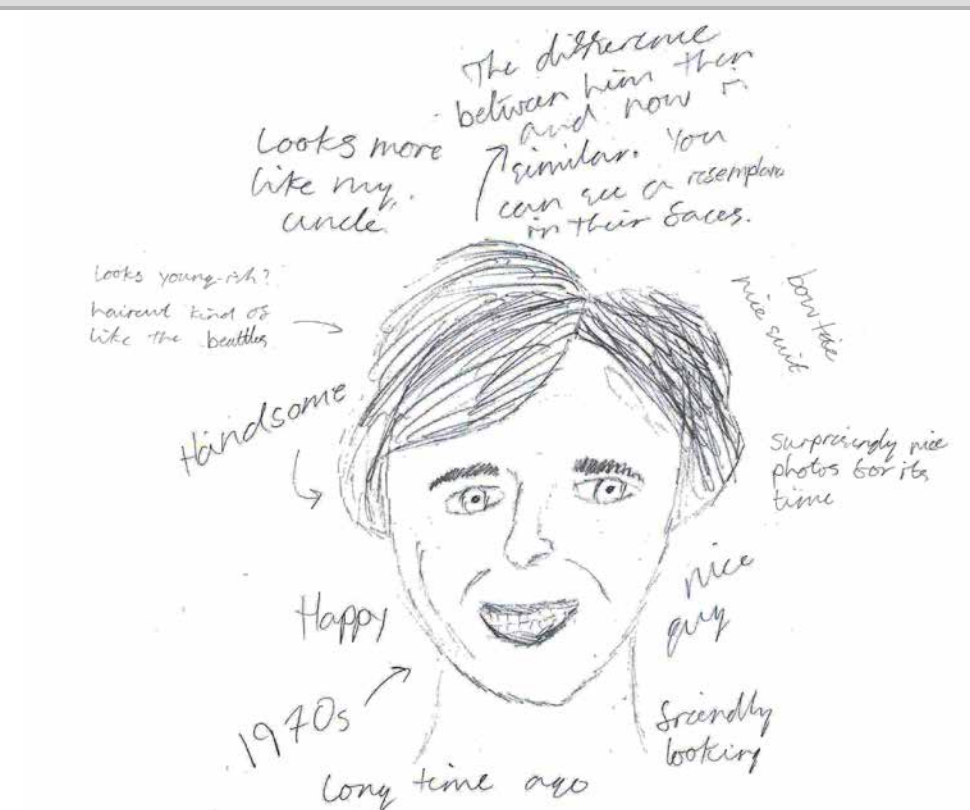 The difference
between him then
and now is
similar. You
can see a resemplance
in their faces.
Looks more
like my
uncle.
Looks young-ish?
haircut kind of
like the beattles
bowtie
nice suit
Handsome
Surprisingly nice
photos for its
time
Happy
nice
guy
1970s
friendly
looking
Long time ago